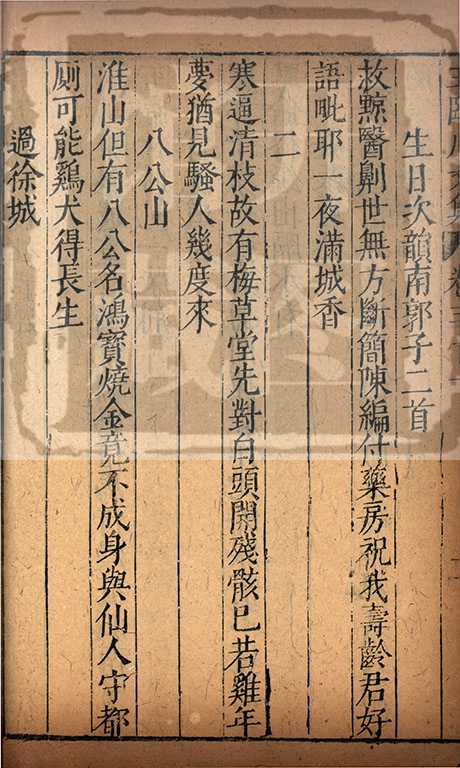 生日次韻南郭子二首
救黥醫劓世無方斷簡陳編付藥房祝我壽齡君好
語毗耶一夜滿城香
二
寒逼清枝故有梅草堂先對白頭開殘骸已若雞年
夢猶見騷人幾度來
八公山
淮山但有八公名鴻寶燒金竟不成身與仙人守都
厠可能鷄犬得長生
過徐城